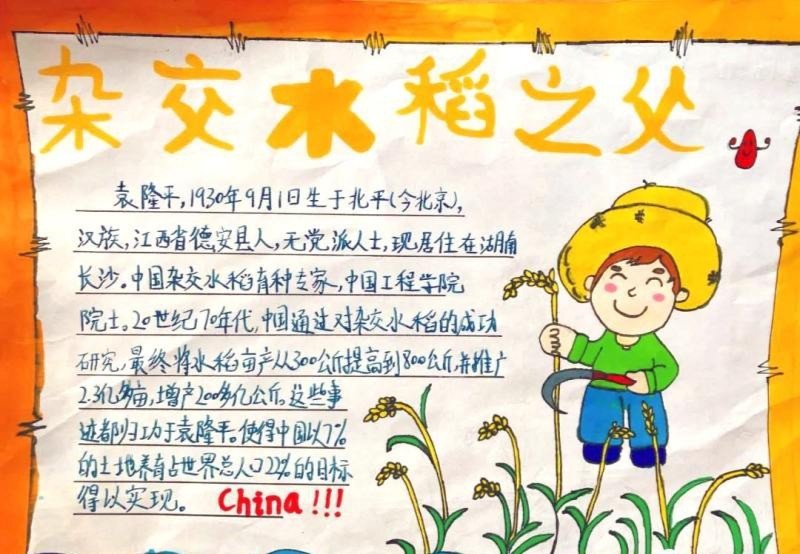 杂交水稻之父
袁隆平,1930年9月1日生于北平(今北京),
汉族,江西省德安县人,无党派人士,现居住在湖南
长沙。中国杂交水稻育种专家,中国工程学院
院士。20世纪70年代,中国通过对杂交水稻的成功
研究,最终将水稻亩产从300公斤提高到800公斤,并推广
2.3亿多亩,增产200多亿公斤。这些事
迹都归功于袁隆平。使得中国以7%
的土地养育占世界总人口22%的目标
得以实现。 China!!!